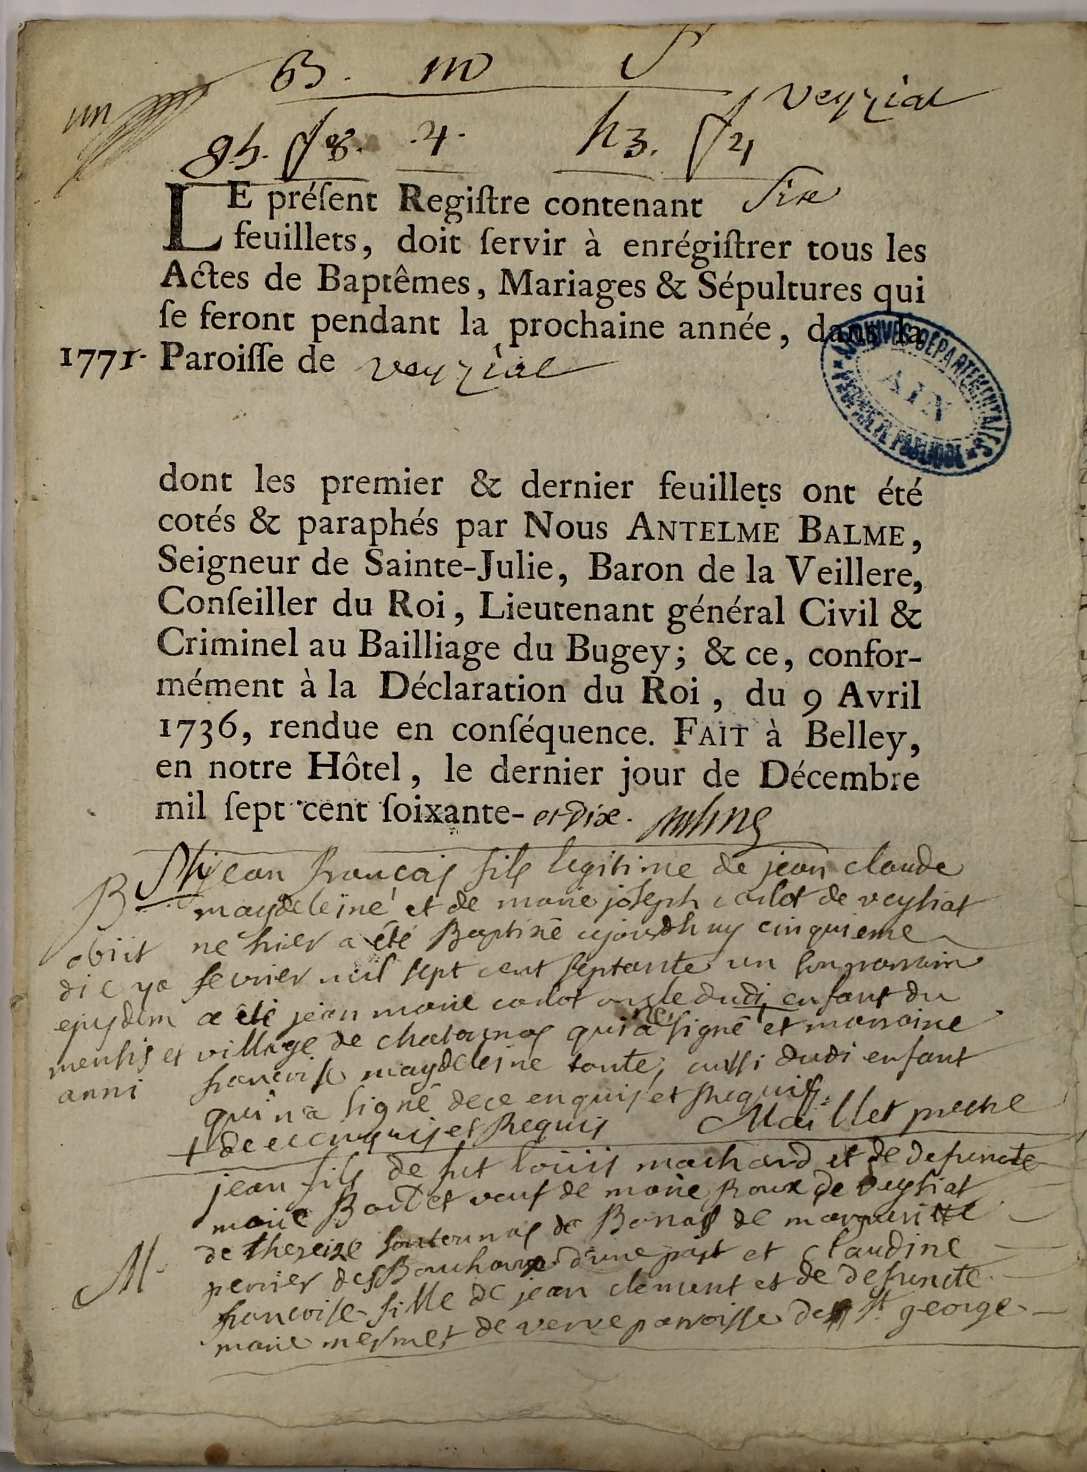 B. m S
un
Veyziat
g5. f8. .4. h3. f4
LE préſent Regiſtre contenant Six
feuillets, doit ſervir à enrégiſtrer tous les
Actes de Baptêmes, Mariages & Sépultures qui
ſe feront pendant la prochaine année, dans la
1771. Paroiſſe de veyziat
ARCHIVES DÉPARTEMENTALES
AIN
dont les premier & dernier feuillets ont été
cotés & paraphés par Nous ANTELME BALME,
Seigneur de Sainte-Julie, Baron de la Veillere,
Conſeiller du Roi, Lieutenant général Civil &
Criminel au Bailliage du Bugey; & ce, confor-
mément à la Déclaration du Roi, du 9 Avril
1736, rendue en conſéquence. FAIT à Belley,
en notre Hôtel, le dernier jour de Décembre
mil ſept cent ſoixante- et dix.
B jean francois fils legitime de jean claude
maydeleine et de marie joseph carlot de veysiat
obiit né hier a été Baptisé aujourdhuy cinquieme
die fevrier mil sept cent septante un son parrain
ejusdem a été jean marie carlot oncle dudi enfant du
mensis et village de chatarnas qui a signé et marraine
anni francoise maydeleine tante aussi dudi enfant
qui n'a signé de ce enquis et Requis.
+ de ce enquis et Requis Maillet pretre
jean fils de fut loüis machard et de defuncte
marie Baillet veuf de marie Roux de veysiat
de thereize de de marguerite
M. perrier des Bouchoux d'une part et claudine
francoise fille de jean clement et de defuncte
marie mermet de verve parroisse de St george